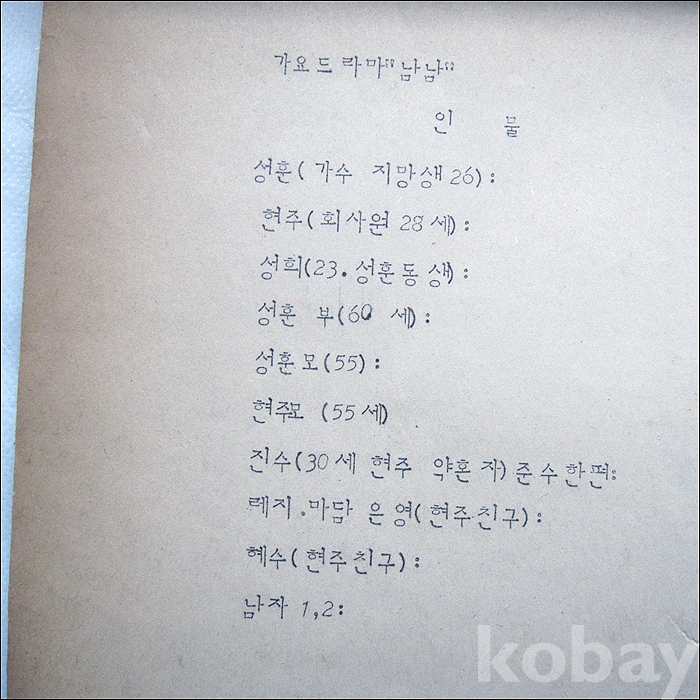 가요드라마"남남"
인 물
성훈(가수 지망생 26):
현주(회사원 28세):
성희(23.성훈동생):
성훈 부(60 세):
성훈모(55):
현주모 (55세)
진수(30세 현주 약혼자)준수한편:
레지.마담 은영(현주친구):
혜수(현주친구):
남자 1,2:
kobay